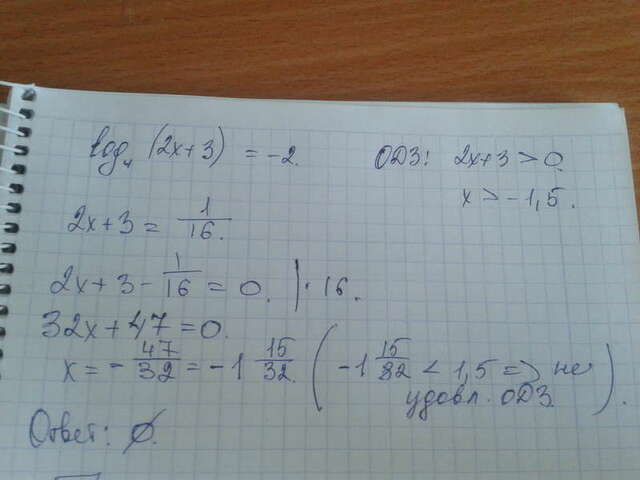 log₄ (2x+3) = -2. ОДЗ: 2x+3 > 0.
x > -1,5.
2x+3 = 1/16.
2x+3 - 1/16 = 0. | · 16.
32x+47=0.
x = - 47/32 = -1 15/32. ( -1 15/32 < 1,5 => не удовл. ОДЗ ).
Ответ: ∅.